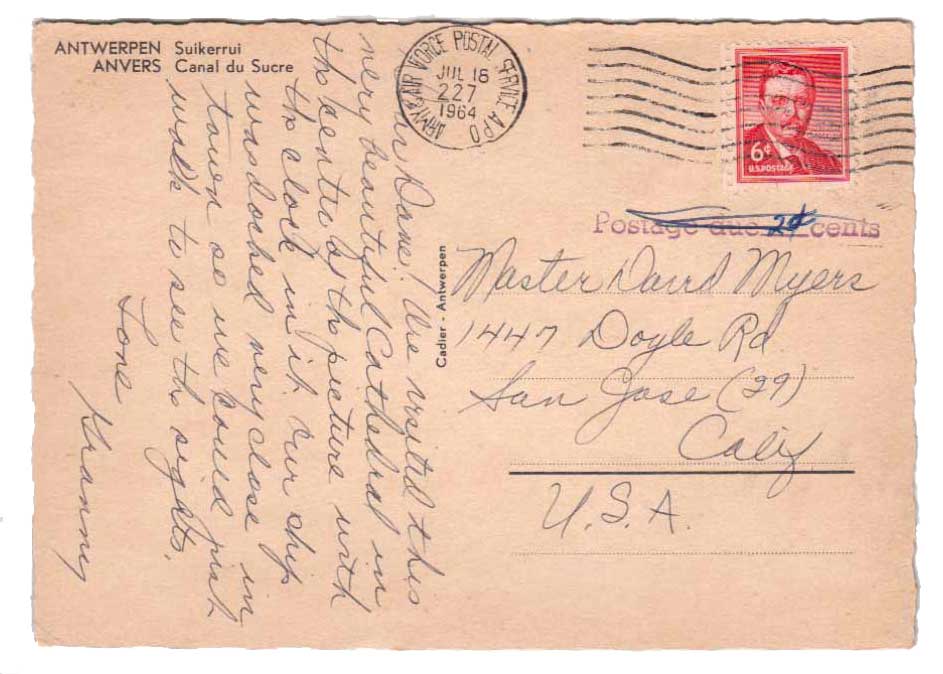 ANTWERPEN Suikerrui
ANVERS Canal du Sucre
Dear Dave! We visited this
very beautiful Cathedral in
the center of the picture with
the clock in it. Our ship
was docked very close in
town so we could just
walk to see the sights.
Love
Granny
Cadier - Antwerpen
ARMY & AIR FORCE POSTAL SERVICE A.P.O.
JUL 18
227
1964
6¢
U.S. POSTAGE
Postage due 2¢ cents
Master David Myers
1447 Doyle Rd
San Jose (29)
Calif
U.S.A.